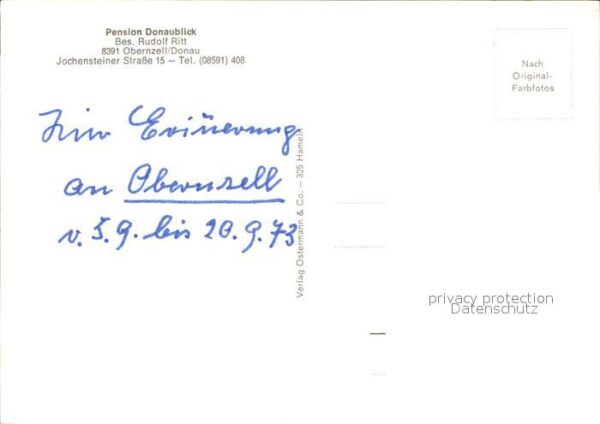 Pension Donaublick
Bes. Rudolf Ritt
8391 Obernzell/Donau
Jochensteiner Straße 15 – Tel. (08591) 408
Nach
Original-
Farbfotos
Zur Erinnerung
an Obernzell
v. 5.9. bis 20.9.73
Verlag Ostermann & Co. – 325 Hameln
privacy protection
Datenschutz